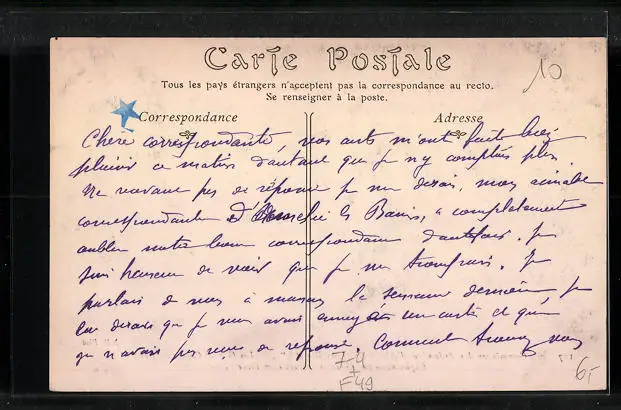 Carte Postale
Tous les pays étrangers n'acceptent pas la correspondance au recto.
Se renseigner à la poste.
10
Correspondance
Adresse
Chère correspondante, vos cartes m'ont faite bien
plaisir ce matin d'autant que je n'y comptais plus.
Ne recevant pas de réponse je me disais, mon aimable
correspondante d'Amélie les Bains, a complètement
oublier notre bonne correspondance d'autrefois. Je
suis heureuse de voir que je me trompais. Je
parlais de vous à maman la semaine dernière, je
lui disais que je vous avais envoyée une carte et que
je n'avais pas reçue de réponse. Comment trouvez vous
74
+
F49
6,-